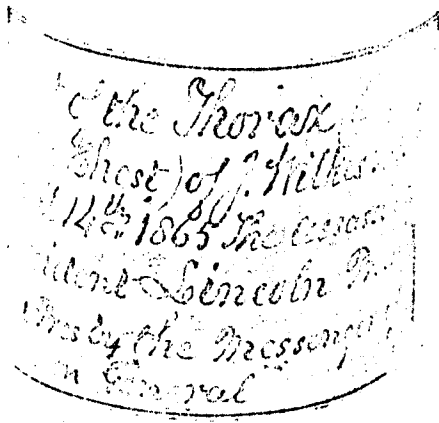 of the Thorax
Chest) of J. Wilkes
14th 1865 The assass
ident Lincoln
by the Messenger
General